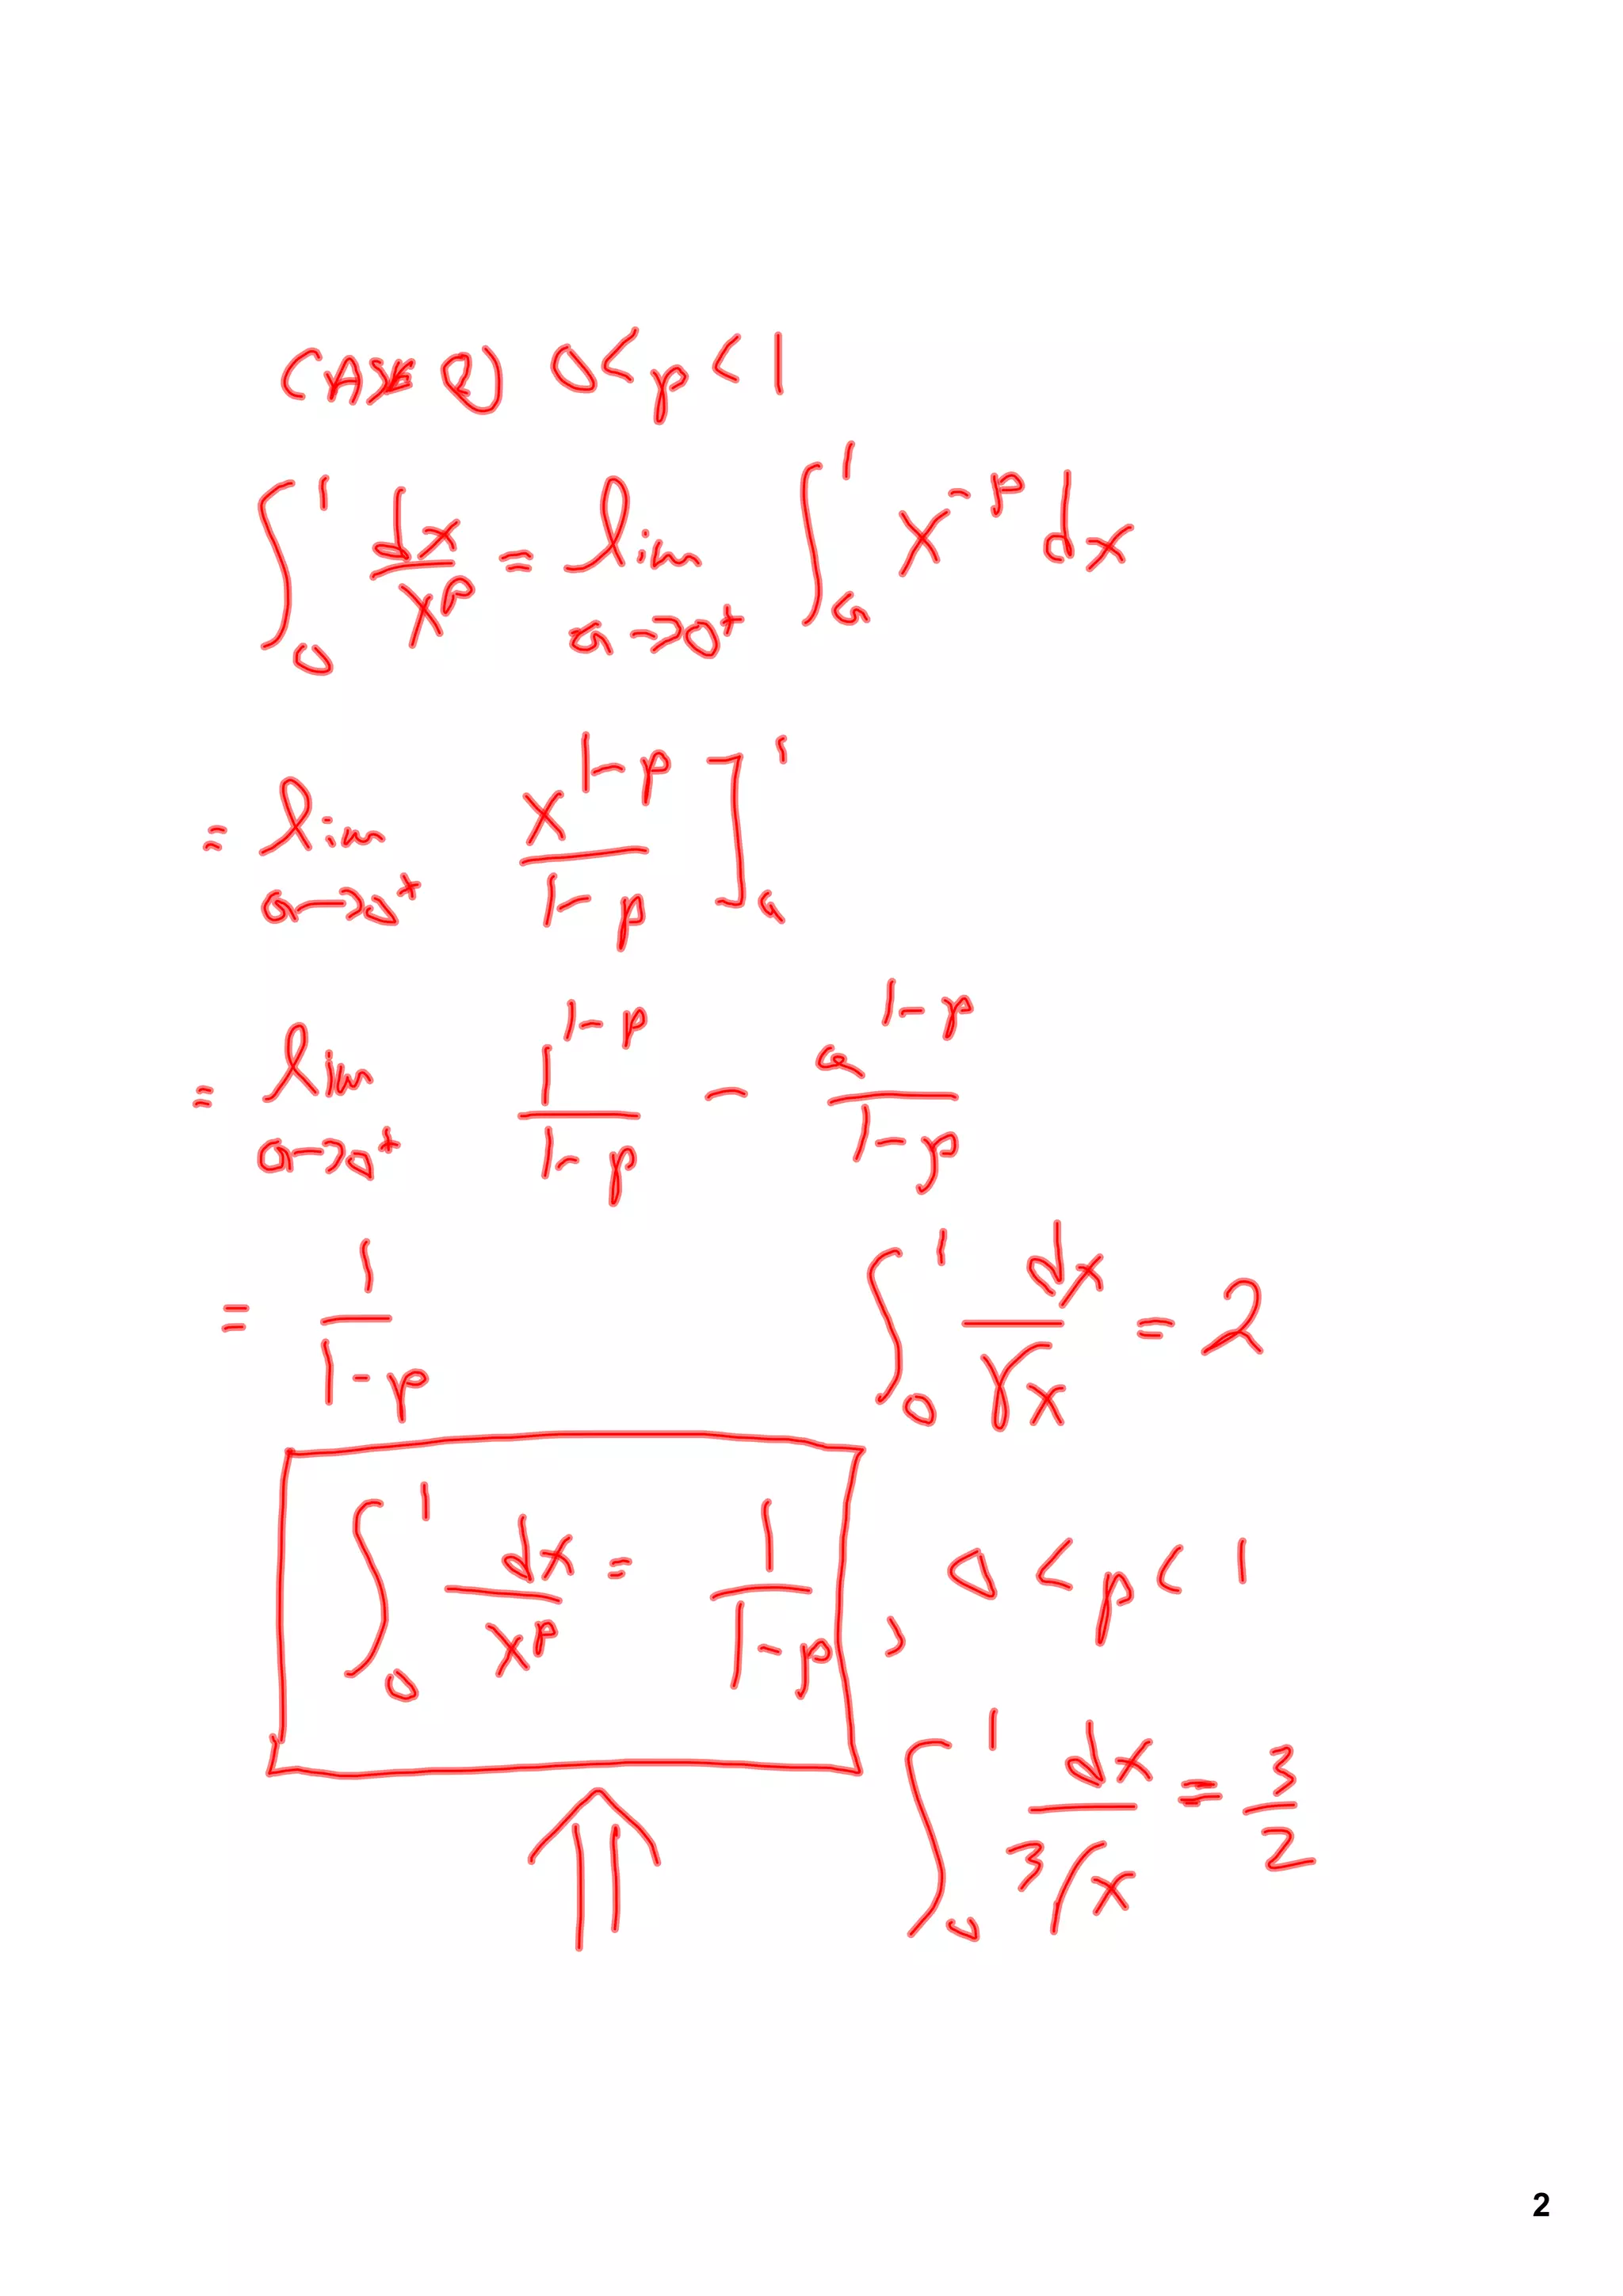 CASE ① 0 < p < 1
∫₀¹ dx/x^p = lim a→0⁺ ∫ₐ¹ x^(-p) dx
= lim a→0⁺ x^(1-p)/(1-p) ]ₐ¹
= lim a→0⁺ 1^(1-p)/(1-p) - a^(1-p)/(1-p)
= 1/(1-p)
∫₀¹ dx/√x = 2
∫₀¹ dx/x^p = 1/(1-p), 0 < p < 1
∫₀¹ dx/³√x = 3/2
2